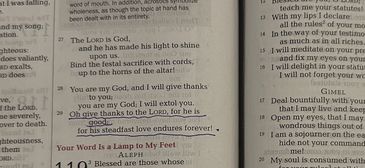 t I was falling,
and my song;
ation.
ghteous:
oes valiantly,
ORD exalts,
does
of the LORD.
me severely,
over to death.
ghteousness,
word of mouth. In addition, acrostics
wisdom, as though the topic at hand has
been dealt with in its entirety.
27 The LORD is God,
and he has made his light to shine
upon us.
Bind the festal sacrifice with cords,
up to the horns of the altar!
28 You are my God, and I will give thanks
to you;
you are my God; I will extol you.
29 Oh give thanks to the LORD, for he is
good;
for his steadfast love endures forever!
Your Word Is a Lamp to My Feet
ALEPH
119 Blessed are those whose
teach me your statutes!
13 With my lips I declare
all the rules of your mouth
14 In the way of your testimonies
as much as in all riches.
15 I will meditate on your precepts
and fix my eyes on your
16 I will delight in your statutes
I will not forget your word
GIMEL
17 Deal bountifully with your
that I may live and keep
18 Open my eyes, that I may
wondrous things out of
19 I am a sojourner on the earth
hide not your commandments
me!
20 My soul is consumed with